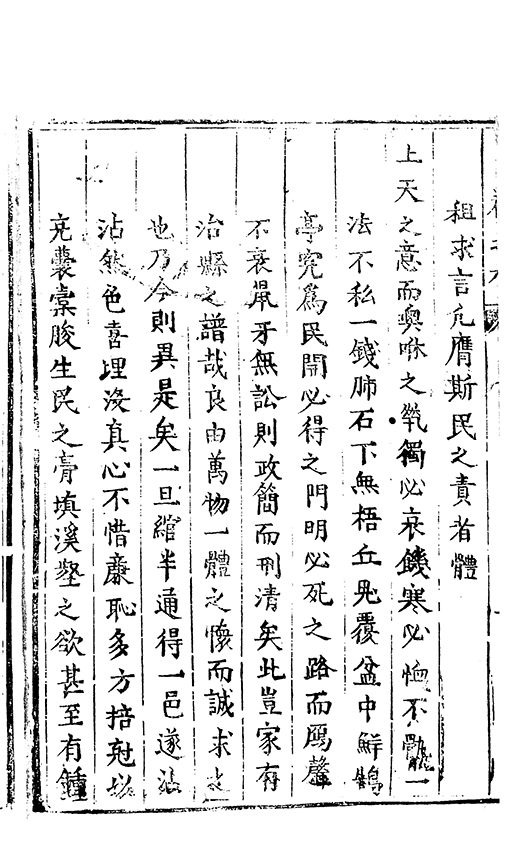 租求言凢膺斯民之責者體
上天之意而噢咻之煢獨必哀饑寒必恤不骫一
法不私一錢肺石下無梧丘鬼覆盆中鮮鵠
亭寃爲民開必得之門明必死之路而鴈罄
不哀鼠牙無訟則政簡而刑清矣此豈家有
治縣之譜哉良由萬物一體之懷而誠求
也乃今則異是矣一旦綰半通得一邑遂沾
沾然色喜埋沒真心不惜亷恥多方掊尅以
充囊橐朘生民之膏填溪壑之欲甚至有鍾